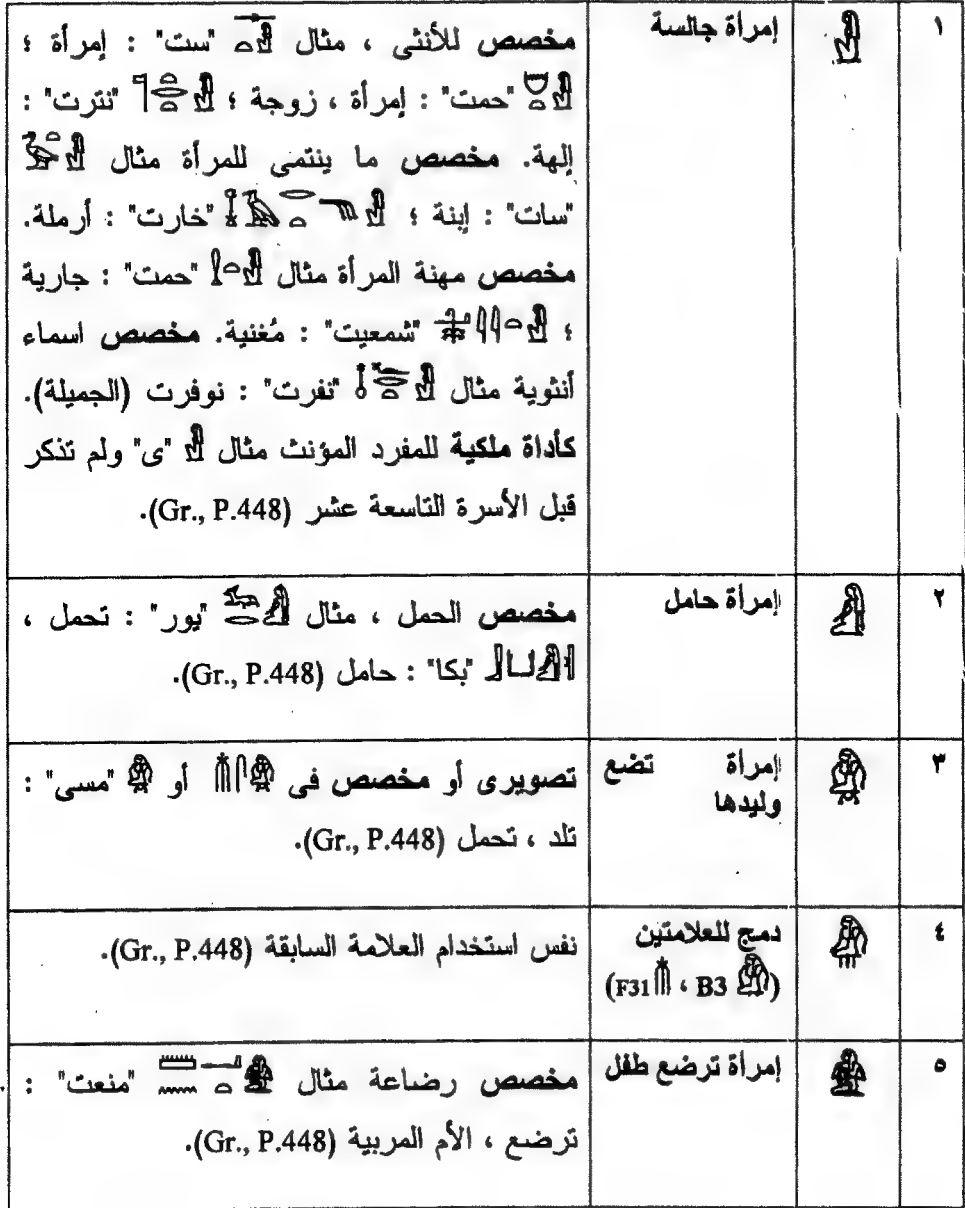 ١ 𓁐 إمرأة جالسة مخصص للأنثى ، مثال "ست" : إمرأة ؛
"حمت" : إمرأة ، زوجة ؛ "نترت" :
إلهة. مخصص ما ينتمى للمرأة مثال
"سات" : إبنة ؛ "خارت" : أرملة.
مخصص مهنة المرأة مثال "حمت" : جارية
؛ "شمعيت" : مُغنية. مخصص اسماء
أنثوية مثال "نفرت" : نوفرت (الجميلة).
كأداة ملكية للمفرد المؤنث مثال 𓁐 "ى" ولم تذكر
قبل الأسرة التاسعة عشر (Gr., P.448).
٢ 𓁑 إمرأة حامل مخصص الحمل ، مثال "يور" : تحمل ،
"بكا" : حامل (Gr., P.448).
٣ 𓁒 إمرأة تضع تصويرى أو مخصص فى 𓄟𓋴𓁒 أو 𓁒 "مسى" :
وليدها تلد ، تحمل (Gr., P.448).
٤ 𓁓 دمج للعلامتين نفس استخدام العلامة السابقة (Gr., P.448).
(𓁒 B3 ، 𓄟 F31)
٥ 𓁔 إمرأة ترضع طفل مخصص رضاعة مثال "منعت" :
ترضع ، الأم المربية (Gr., P.448).